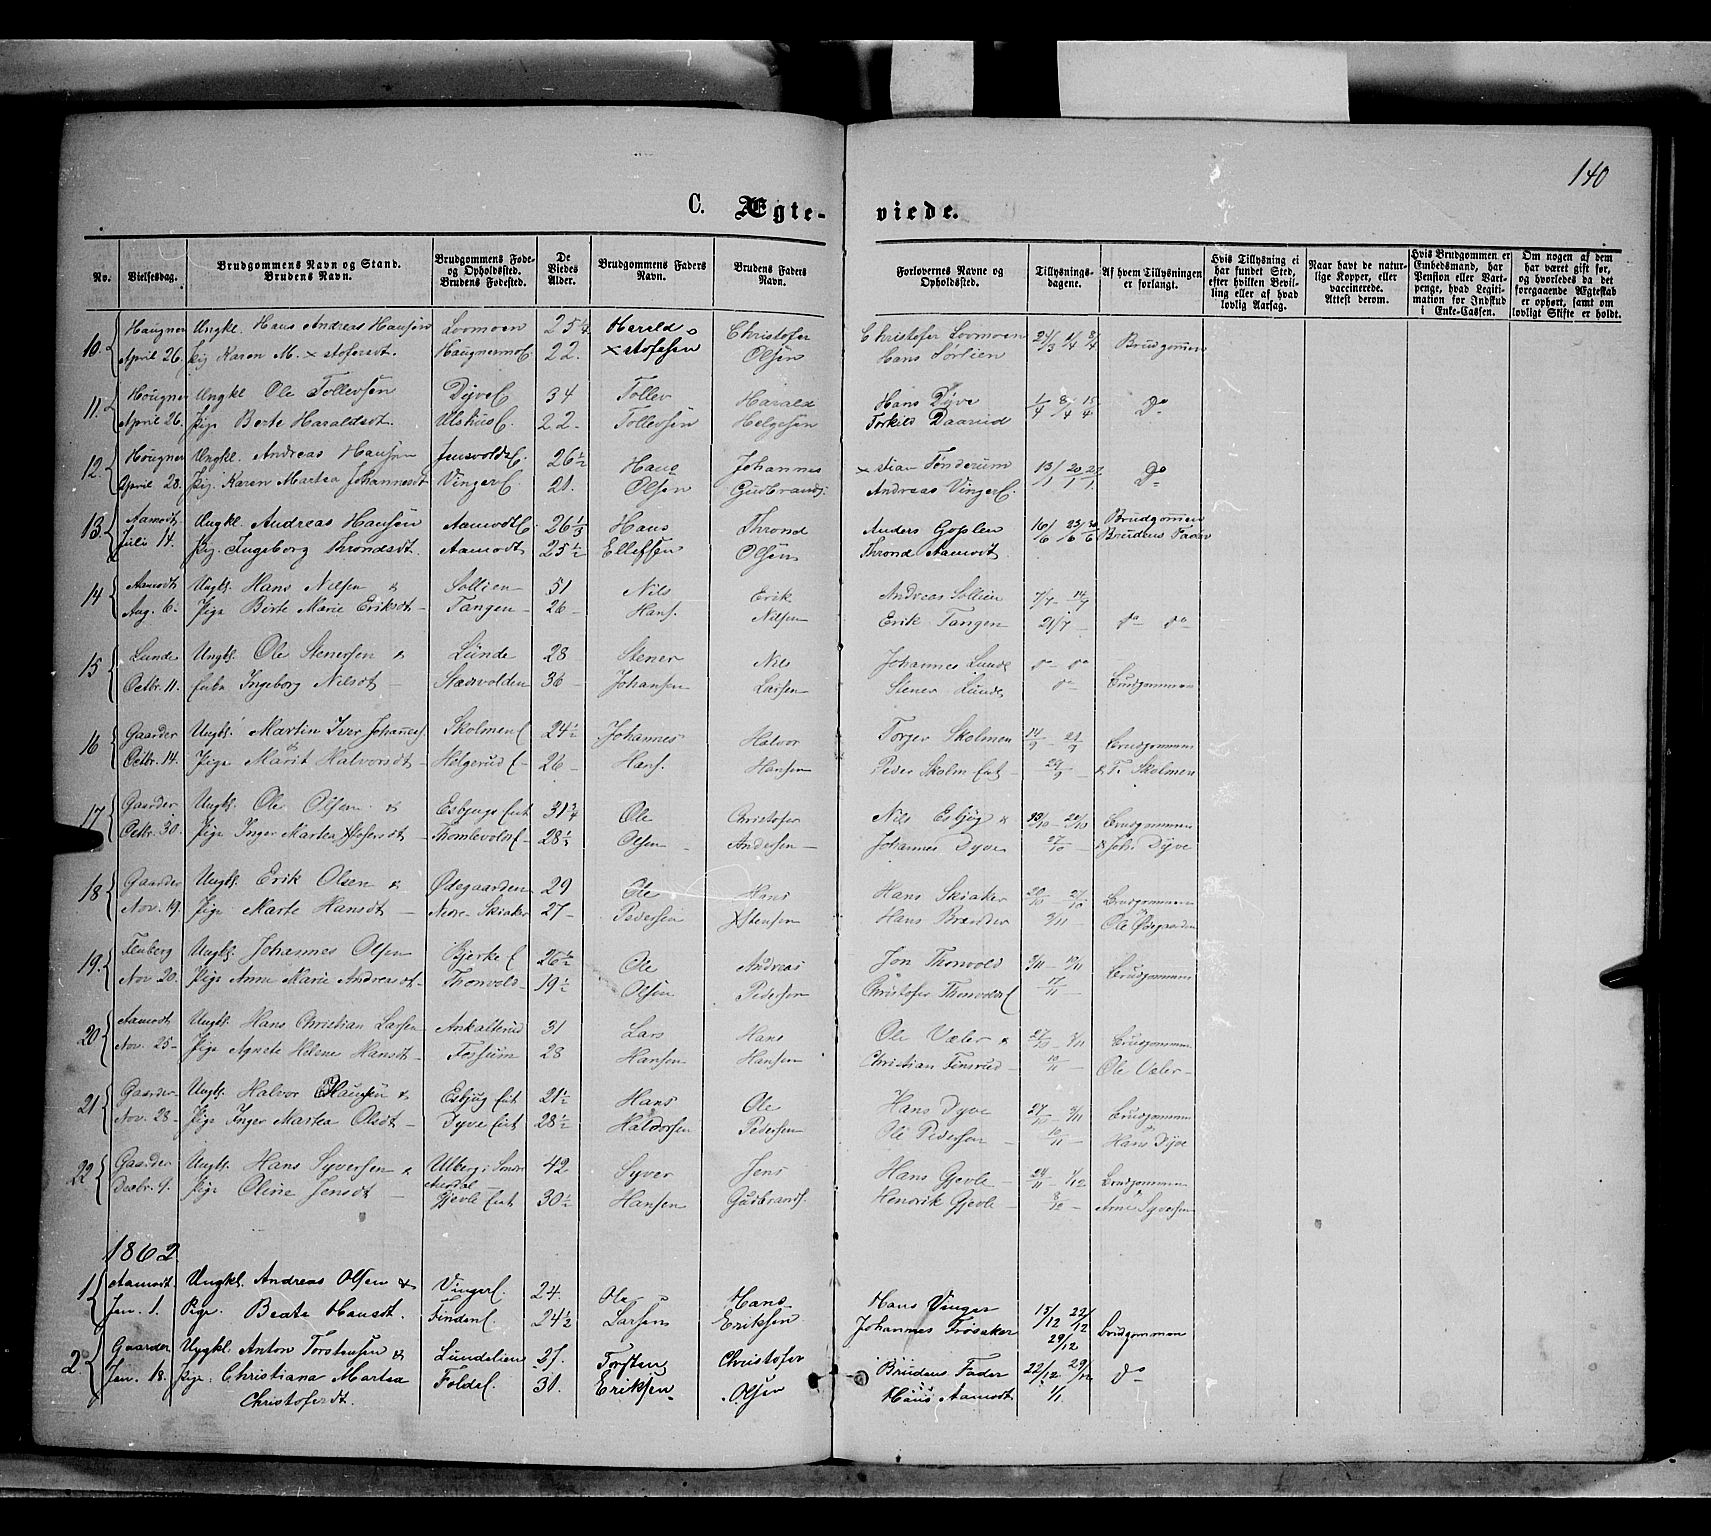 140
C. Ægte- viede.
No. Vielsesdag. Brudgommens Navn og Stand. Brudens Navn. Brudgommens Føde- og Opholdssted. Brudens Fødested. De Viedes Alder. Brudgommens Faders Navn. Brudens Faders Navn. Forlovernes Navne og Opholdssted. Tillysnings-dagene. Af hvem Tillysningen er forlangt. Hvis Tillysning ei har fundet Sted, efter hvilken Bevilling eller af hvad lovlig Aarsag. Naar havt de naturlige Kopper, eller vaccinerede. Attest derom. Hvis Brudgommen er Embedsmand, har Pension eller Vartpenge, hvad Legitimation for Indskud i Enke-Cassen. Om nogen af dem har været gift før, og hvorledes da det foregaaende Ægteskab er ophørt, samt om lovligt Skifte er holdt.
10. Haugner Ungkl. Hans Andreas Hansen Loomoen 25 Harald Christofer Christofer Loomoen
April 26. Pig. Karen M. xstofersdt. 22. xstofesen Olsen Hans Sørlien Brudgommen
11. Hougner Ungkl Ole Tollevsen Dyve 34 Tollev Harald Hans Dyve 1/4 8/4 15/4 Do
April 26. Pige Berte Haraldsdt. Ulshus 22 Tollevsen Helgesen Torkild Daarud
12. Hougner Ungkl. Andreas Hansen Jensvold 26½ Hans Johannes xstian Tønderum 13/1 20/1 27/1 Do
April 28. Pig. Karen Martea Johannesdt Vinger 21. Olsen Gudbrands. Andreas Vinger
13. Aamodt Ungkl. Andreas Hansen Aamodt 26⅓ Hans Thrond Anders Goplen 16/6 23/6 30/6 Brudgommen
Juli 14. Pig. Ingeborg Throndsdt. Aamodt 25½ Ellefsen Olsen Thrond Aamodt Brudens Fader
14 Aamodt Ungk. Hans Nilsen & Sollien 51 Nils Erik Andreas Sollien 7/7 14/7
Aug. 6. Pige Birte Marie Eriksdt Tangen 26 Hans. Nilsen Erik Tangen 21/7 do do
15 Lunde Ungk. Ole Stenersen & Lunde 28 Stener Nils Johannes Lunde do do
Octbr. 11. Ingeborg Nilsdt Stadsvolden 36 Johansen Larsen Stener Lunde do Brudgommen
16 Gaarder Ungk. Martin Iver Johannes. Skolmen 24½ Johannes Halvor Torger Skolmen 14/9 21/9 Brudgommen
Octbr. 14. Pige Marit Halvorsdt Helgerud 26 Hans. Hansen Peder Skolm eiet 29/9 & T. Skolmen
17 Gaarder Ungk. Ole Olsen & Esbjugs eiet 31¾ Ole Christofer Nils Esbjug & Brudgommen
Octbr. 30. Pige Inger Martea Xstofersdt Thomlevolds 28½ Olsen Andersen Johannes Dyve 27/10 & Joh. Dyve
18 Gaarder Ungk. Erik Olsen & Ødegaarden 29 Ole Hans Hans Skiaker 20/10 Brudgommen
Nov. 19. Pige Marte Hansdt Nedre Skiaker 27 Pedersen Xstensen Hans Brænden 3/11 Ole Ødegaarden
19. Flenberg Ungk. Johannes Olsen Bjerke 26½ Ole Andreas Jon Thonvold 3/11 10/11 Brudgommen
Nov. 20. Pige Anne Marie Andreasdt. Thonvold 19½ Olsen Pedersen Christofer Thonvolds 17/11
20 Aamodt Ungk. Hans Christian Larsen Ankalterud 31 Lars Hans Ole Væler & 27/10 3/11 Brudgommen
Nov. 25. Pige Agnete Helene Hansdt Fossum 28 Hansen Hansen Christian Finsrud 10/11 Ole Væler
21 Gaarder Ungk. Halvor Hansen & Esbjug eiet 21½ Hans Ole Hans Dyve 27/10 3/11 Brudgommen
Nov. 28 Pige Inger Martea Olsdt Dyve eiet 28½ Haldorsen Pedersen Ole Pedersen 10/11 Hans Dyve
22 Gaarder Ungk. Hans Syversen & Ulberg i Søndre Aurdal 42 Syver Jens Hans Gjevle 24/11 1/12 Brudgommen
Decbr. 9. Pige Oline Jensdt Gjevle eiet 30½ Hansen Gudbrands. Henrik Gjevle 8/12 Arne Syversen
1862
1 Aamodt Ungkl. Andreas Olsen & Vinger 24. Ole Hans Hans Vinger 15/12 22/12
Jan. 1. Pige. Beate Hansdt. Finden 24½ Larsen Eriksen Johannes Frøsaker 29/12 Brudgommen
2. Gaarder Ungkl. Anton Torstensen & Lundelien 27. Torsten Christofer Brudens Fader 22/12 29/12 Do
Jan. 18. Pige. Christiana Martea Folde 31. Eriksen Olsen Hans Aamodt 1/1.
Christofersdt.